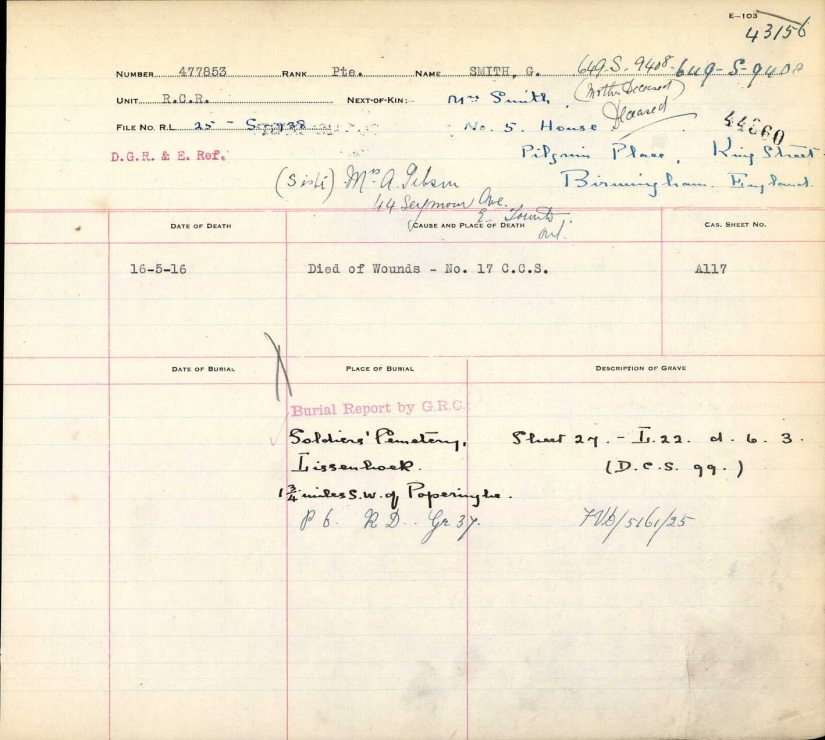 E-103
43156
NUMBER 477853 RANK Pte. NAME SMITH, G. 649-S-9408 649-S-9408
(Mother Deceased)
UNIT R.C.R. NEXT-OF-KIN: Mrs Smith Deceased
FILE NO. R.L. 25 - S- No. 5. House 44260
D.G.R. & E. Ref. Pilgrim Place, King Street
(Sister) Mrs A. Gibson Birmingham. England.
44 Seymour Ave.
E. Toronto
Ont.
DATE OF DEATH CAUSE AND PLACE OF DEATH CAS. SHEET NO.
16-5-16 Died of Wounds - No. 17 C.C.S. A117
DATE OF BURIAL PLACE OF BURIAL DESCRIPTION OF GRAVE
Burial Report by G.R.C.
Soldiers' Cemetery, Sheet 27. - L. 22. d. 6. 3.
Lissenhoek. (D.C.S. 99.)
1 3/4 miles S.W. of Poperinghe.
P 6. R D. Gr 37.